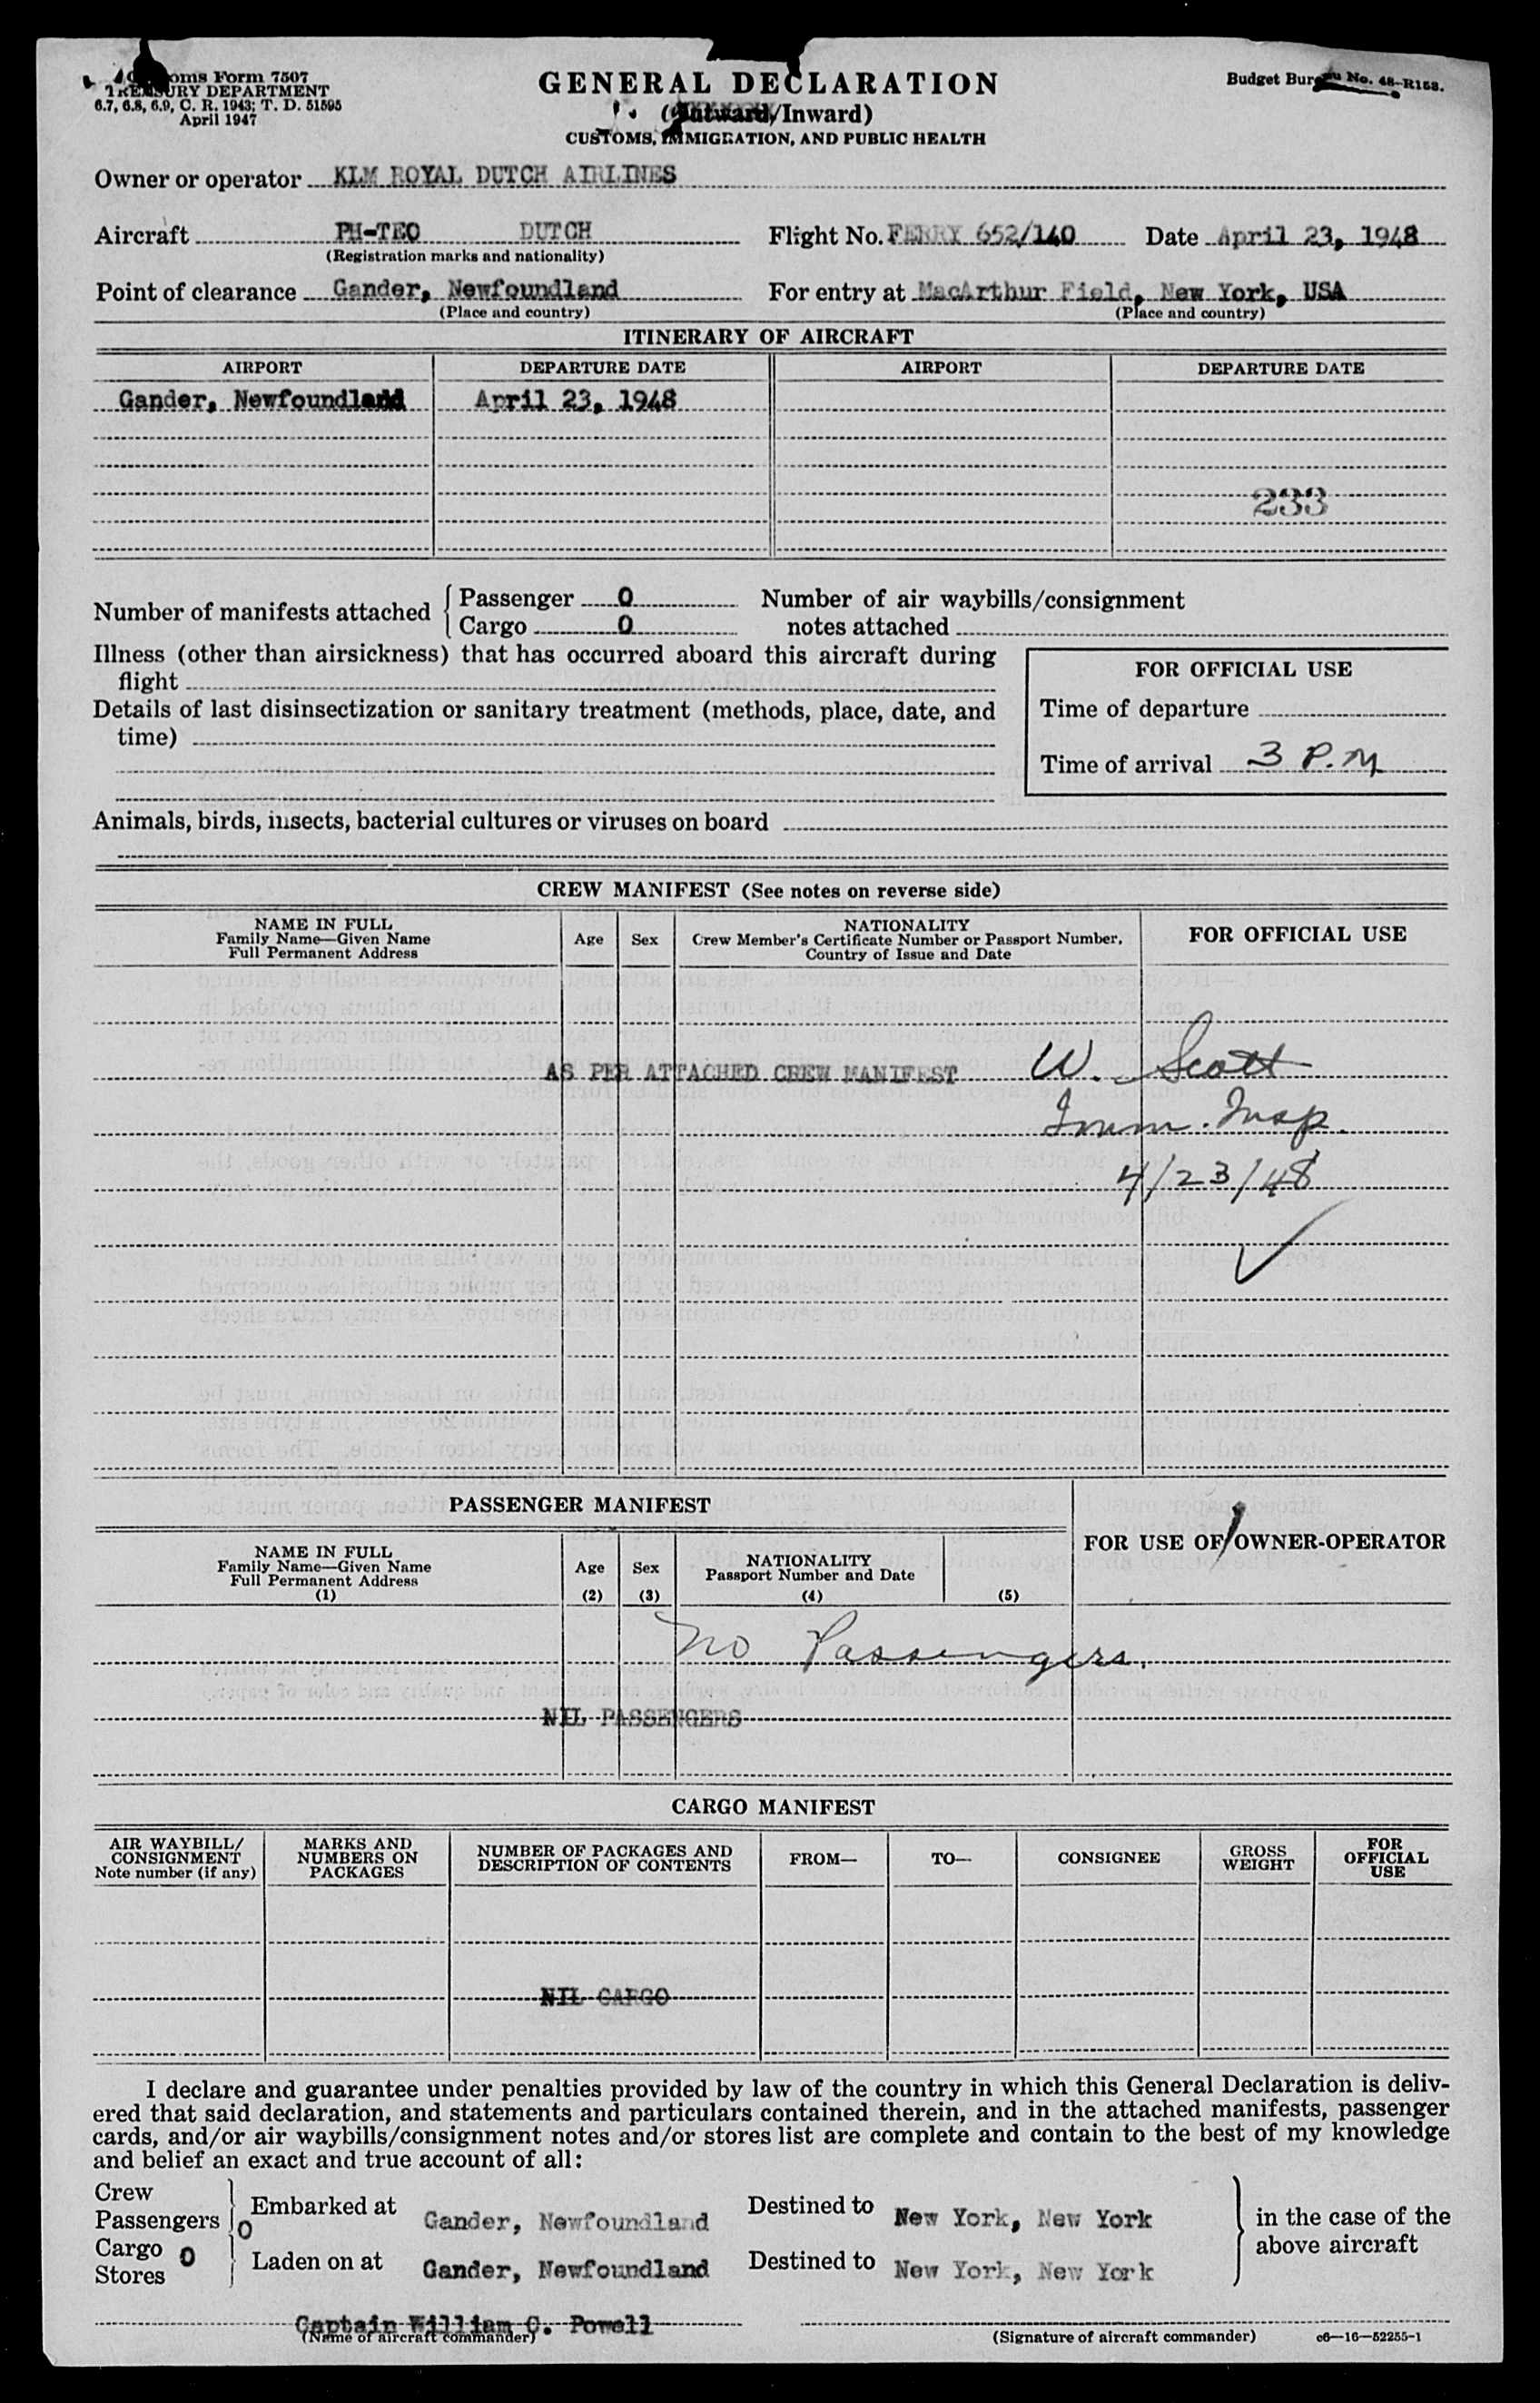 Customs Form 7507
TREASURY DEPARTMENT
6.7, 6.8, 6.9, C. R. 1943; T. D. 51595
April 1947
GENERAL DECLARATION
(Outward/Inward)
CUSTOMS, IMMIGRATION, AND PUBLIC HEALTH
Budget Bureau No. 48-R153.
Owner or operator KLM ROYAL DUTCH AIRLINES
Aircraft PH-TEO DUTCH Flight No. FERRY 652/140 Date April 23, 1948
(Registration marks and nationality)
Point of clearance Gander, Newfoundland For entry at MacArthur Field, New York, USA
(Place and country) (Place and country)
ITINERARY OF AIRCRAFT
AIRPORT DEPARTURE DATE AIRPORT DEPARTURE DATE
Gander, Newfoundland April 23, 1948
233
Number of manifests attached { Passenger 0 Number of air waybills/consignment
Cargo 0 notes attached
Illness (other than airsickness) that has occurred aboard this aircraft during
flight
Details of last disinsectization or sanitary treatment (methods, place, date, and
time)
FOR OFFICIAL USE
Time of departure
Time of arrival 3 P.M
Animals, birds, insects, bacterial cultures or viruses on board
CREW MANIFEST (See notes on reverse side)
NAME IN FULL
Family Name—Given Name
Full Permanent Address
Age
Sex
NATIONALITY
Crew Member's Certificate Number or Passport Number,
Country of Issue and Date
FOR OFFICIAL USE
AS PER ATTACHED CREW MANIFEST W. Scott
Imm. Insp.
4/23/48
PASSENGER MANIFEST
FOR USE OF OWNER-OPERATOR
NAME IN FULL
Family Name—Given Name
Full Permanent Address
(1)
Age
(2)
Sex
(3)
NATIONALITY
Passport Number and Date
(4)
(5)
No Passengers.
NIL PASSENGERS
CARGO MANIFEST
AIR WAYBILL/
CONSIGNMENT
Note number (if any)
MARKS AND
NUMBERS ON
PACKAGES
NUMBER OF PACKAGES AND
DESCRIPTION OF CONTENTS
FROM—
TO—
CONSIGNEE
GROSS
WEIGHT
FOR
OFFICIAL
USE
NIL CARGO
I declare and guarantee under penalties provided by law of the country in which this General Declaration is deliv-
ered that said declaration, and statements and particulars contained therein, and in the attached manifests, passenger
cards, and/or air waybills/consignment notes and/or stores list are complete and contain to the best of my knowledge
and belief an exact and true account of all:
Crew
Passengers 0 Embarked at Gander, Newfoundland Destined to New York, New York in the case of the
Cargo 0 Laden on at Gander, Newfoundland Destined to New York, New York above aircraft
Stores
Captain William C. Powell
(Name of aircraft commander) (Signature of aircraft commander) c6—16—52255-1